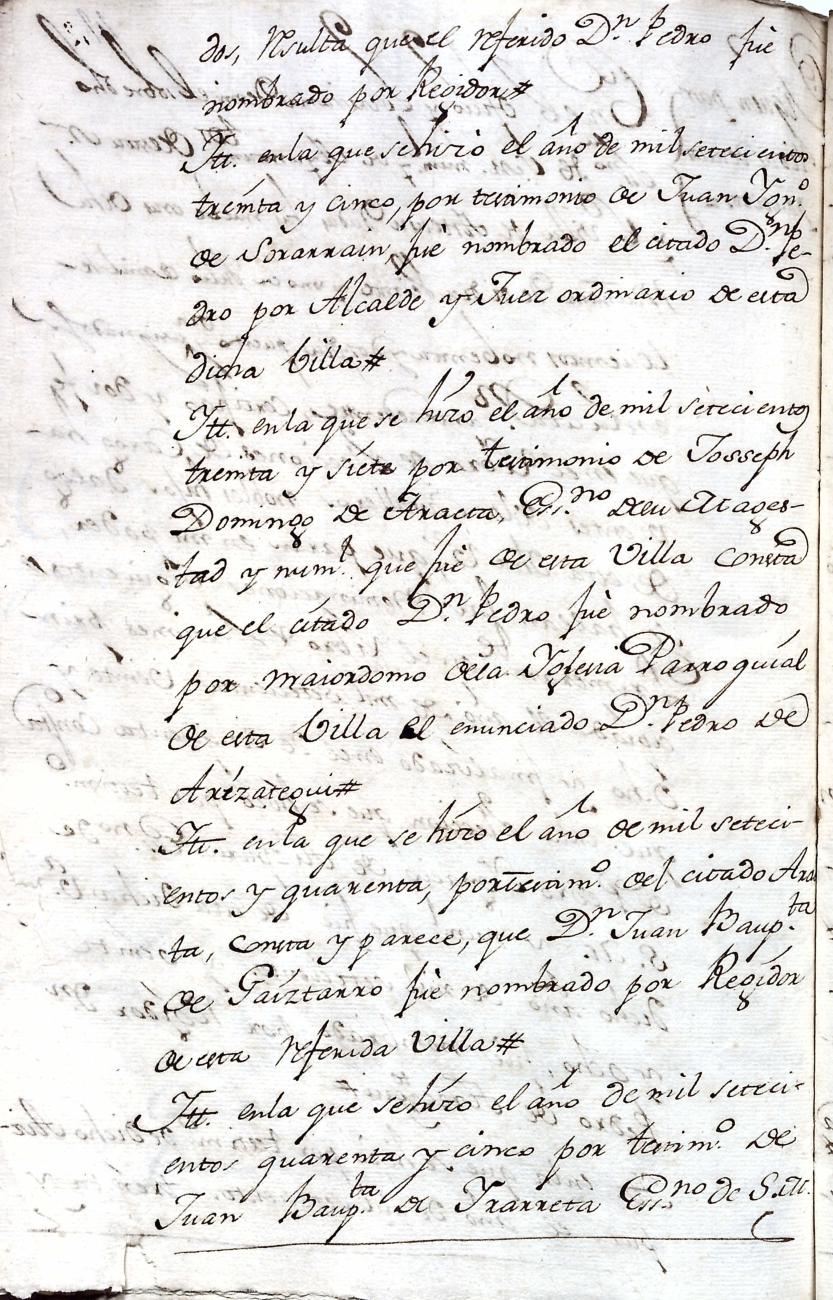 dos, Resulta que el referido Dn. Pedro fuè
nombrado por Regidor#
Itt. en la que se hizo el año de mil setecientos
treinta y cinco, por testimonio de Juan Ygn.o
de Sorarrain, fuè nombrado el citado Dn. Pe-
dro por Alcalde y Juez ordinario de esta
dicha Villa#
Itt. en la que se hizo el año de mil setecientos
treinta y siete por testimonio de Josseph
Domingo de Araeta, Ess.no de su Mages-
tad y num.l que fuè de esta Villa consta
que el citado Dn. Pedro fuè nombrado
por maiordomo de la Yglesia Parroquial
de esta Villa el enunciado Dn. Pedro de
Arézategui#
Itt. en la que se hizo el año de mil seteci-
entos y quarenta, por testim.o del citado Arae
ta, consta y parece, que Dn. Juan Baup.ta
de Gaíztarro fuè nombrado por Regidor
de esta referida Villa#
Itt. en la que se hizo el año de mil seteci-
entos quarenta y cinco por testim.o de
Juan Baup.ta de Yrarreta Ess.no de S.M.